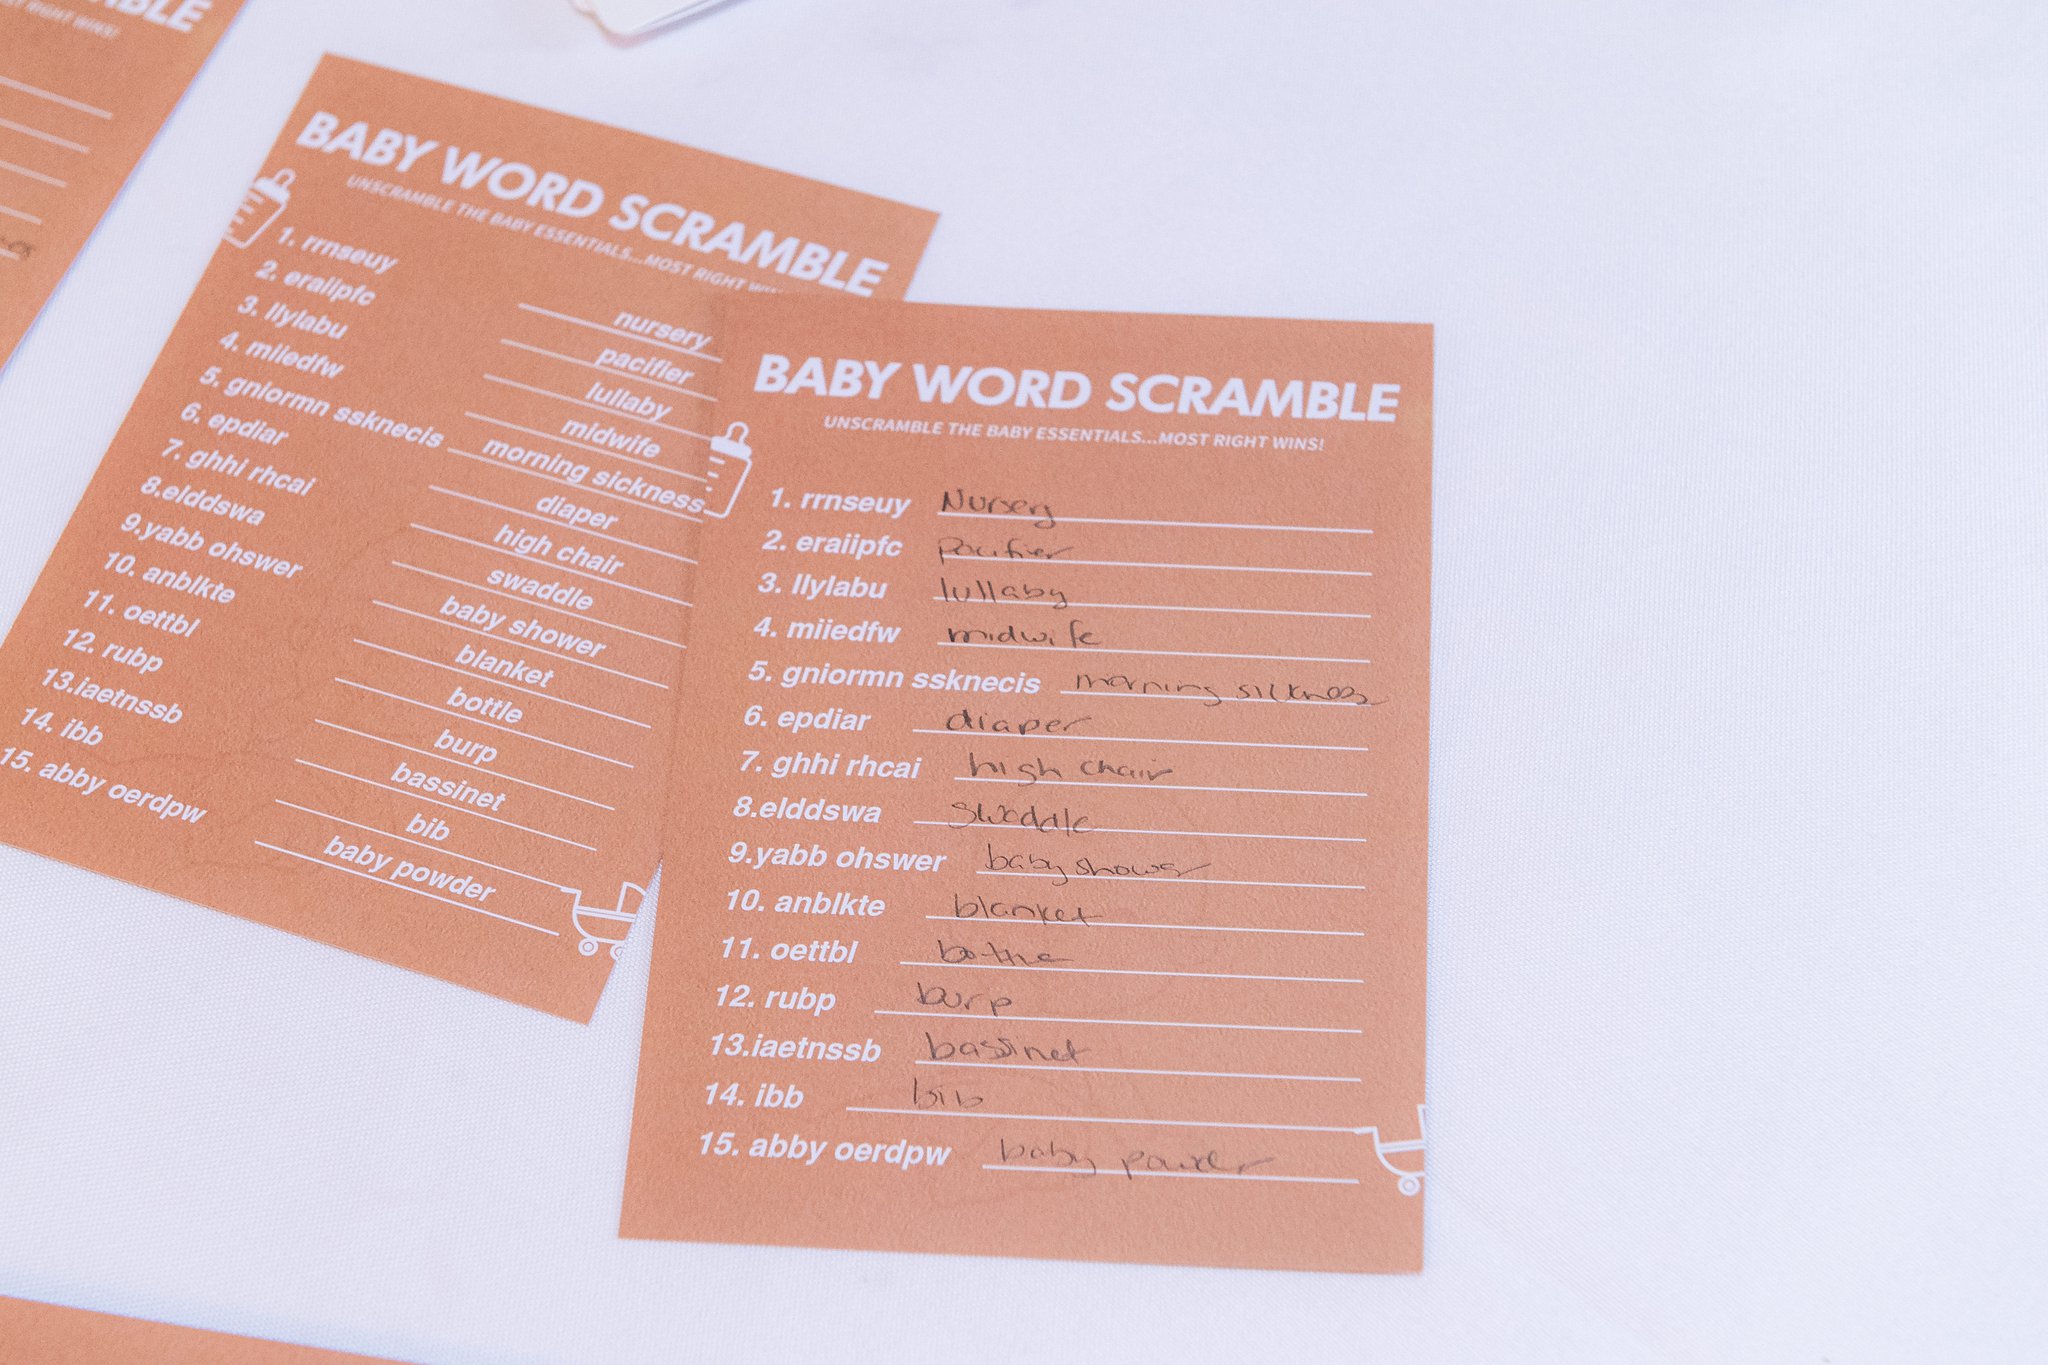 BLE
RIGHT WINS!
BABY WORD SCRAMBLE
UNSCRAMBLE THE BABY ESSENTIALS...MOST RIGHT
1. rrnaeuy nursery
2. eraiipfc pacifier
3. llylabu lullaby
4. miiedfw midwife
5. gniormn ssknecis morning sickness
6. epdiar diaper
7. ghhi rhcai high chair
8.elddswa swaddle
9.yabb ohswer baby shower
10. anblkte blanket
11. oettbl bottle
12. rubp burp
13.iaetnssb bassinet
14. ibb bib
15. abby oerdpw baby powder
BABY WORD SCRAMBLE
UNSCRAMBLE THE BABY ESSENTIALS...MOST RIGHT WINS!
1. rrnseuy Nursery
2. eraiipfc pacifier
3. llylabu lullaby
4. miiedfw midwife
5. gniormn ssknecis morning sickness
6. epdiar diaper
7. ghhi rhcai high chair
8.elddswa swaddle
9.yabb ohswer baby shower
10. anblkte blanket
11. oettbl bottle
12. rubp burp
13.iaetnssb bassinet
14. ibb bib
15. abby oerdpw baby powder